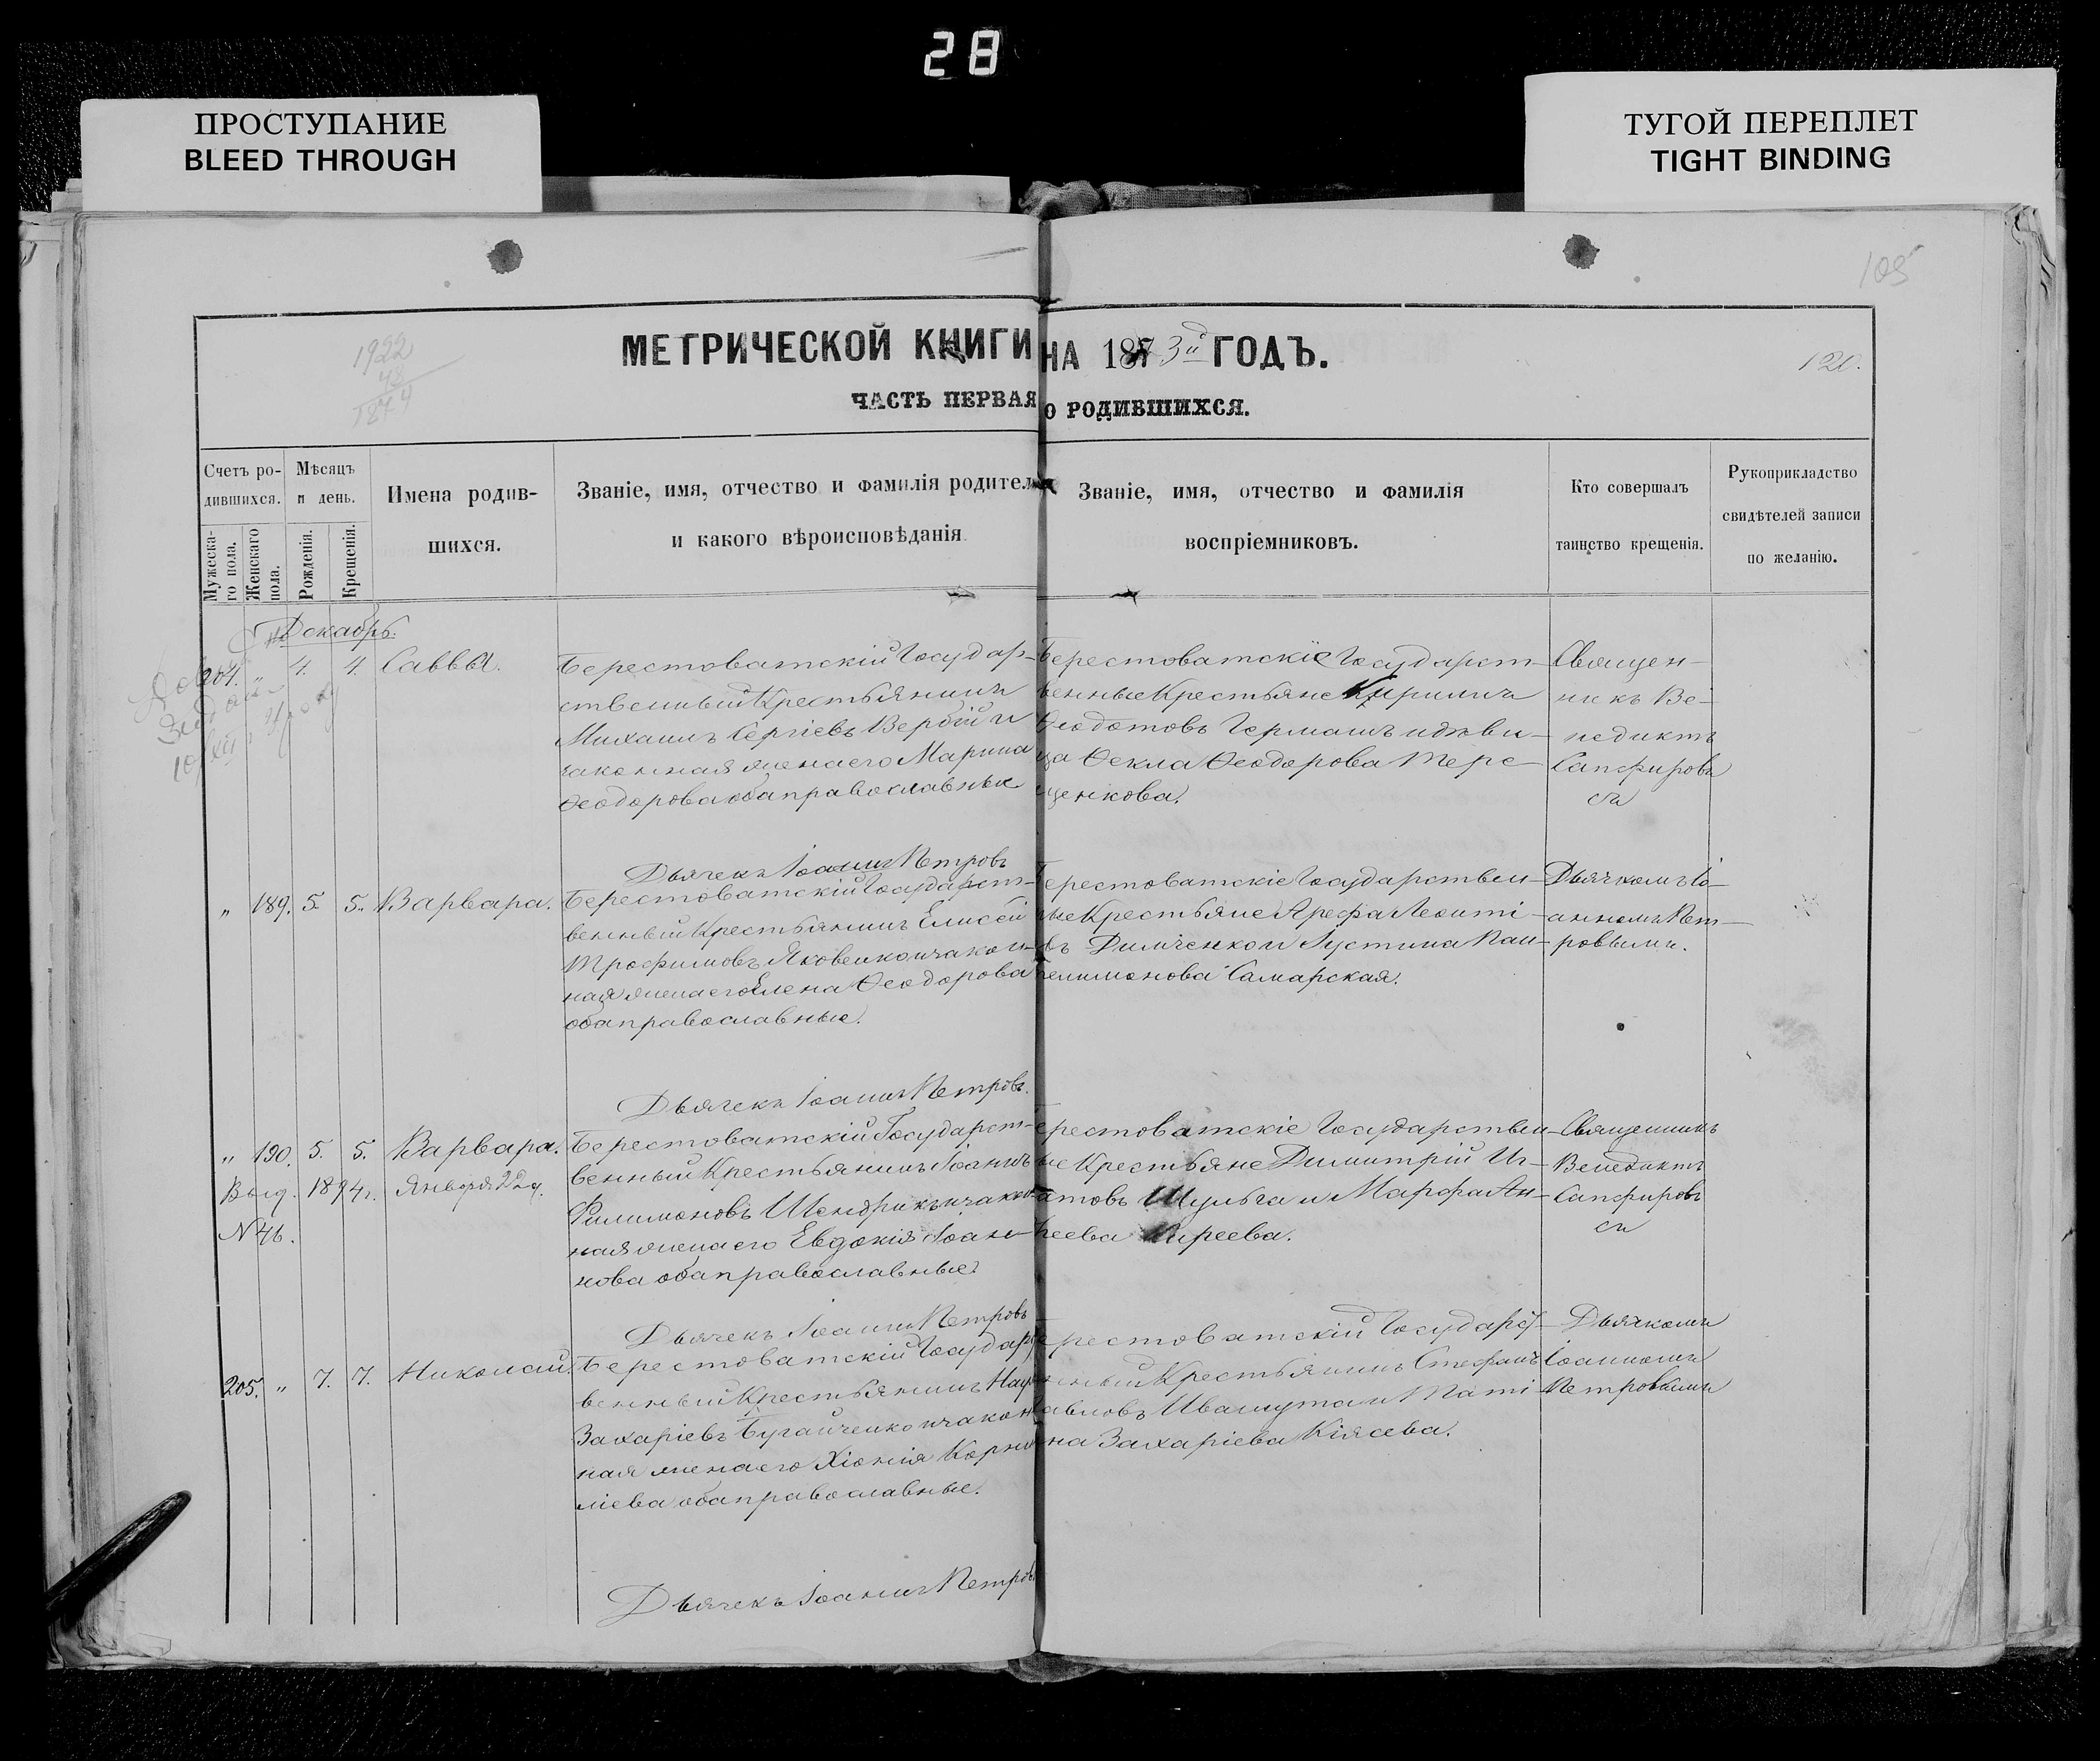 28
ПРОСТУПАНИЕ
BLEED THROUGH
ТУГОЙ ПЕРЕПЛЕТ
TIGHT BINDING
105
1922
48
1874
МЕТРИЧЕСКОЙ КНИГИ НА 1873й ГОДЪ.
120.
ЧАСТЬ ПЕРВАЯ О РОДИВШИХСЯ.
Счетъ ро-
дившихся.
Мужеска-
го пола.
Женскаго
пола.
Мѣсяцъ
и день.
Рожденія.
Крещенія.
Имена родив-
шихся.
Званіе, имя, отчество и фамилія родител
и какого вѣроисповѣданія
Званіе, имя, отчество и фамилія
воспріемниковъ.
Кто совершалъ
таинство крещенія.
Рукоприкладство
свидѣтелей записи
по желанію.
Декабрь.
204. " 4. 4. Савва.
Берестоватскій Государ-
ственный Крестьянинъ
Михаилъ Сергіевъ Вербій и
законная жена его Марина
Ѳеодорова оба православные
Берестоватскіе Государст-
венные Крестьяне Кирилъ
Ѳеодотовъ Германъ и дѣви-
ца Ѳекла Ѳеодорова Тере-
щенкова.
Священ-
никъ Ве-
недиктъ
Сапфировъ
Дьячекъ Іоаннъ Петровъ
" 189. 5. 5. Варвара.
Берестоватскій Государст-
венный Крестьянинъ Елисей
Трофимовъ Яковенко и закон-
ная жена его Елена Ѳеодорова
оба православные.
Берестоватскіе Государствен-
ные Крестьяне Арефа Леонті-
въ Димченко и Іустина Пан-
телимонова Самарская.
Дьячкомъ Іо-
анномъ Пет-
ровымъ.
Дьячекъ Іоаннъ Петровъ.
" 190. 5. 5. Варвара.
Выд. 1894г. Января 22д.
№46.
Берестоватскій Государст-
венный Крестьянинъ Іоаннъ
Филимоновъ Шендрикъ и закон-
ная жена его Евдокія Іоан-
нова оба православные.
ерестоватскіе Государствен-
ые Крестьяне Димитрій Иг-
атовъ Шульга и Марфа Ан-
реева Киреева.
Священникъ
Венедиктъ
Сапфировъ
Дьячекъ Іоаннъ Петровъ
205. " 7. 7. Николай.
Берестоватскій Государ
венный Крестьянинъ Нау
Захаріевъ Бугайченко и закон
ная жена его Хіонія Корни
ліева оба православные.
ерестоватскій Государст-
енный Крестьянинъ Стефанъ
авловъ Ивашута и Таті-
на Захаріева Кіяева.
Дьячкомъ
Іоанномъ
Петровымъ
Дьячекъ Іоаннъ Петровъ